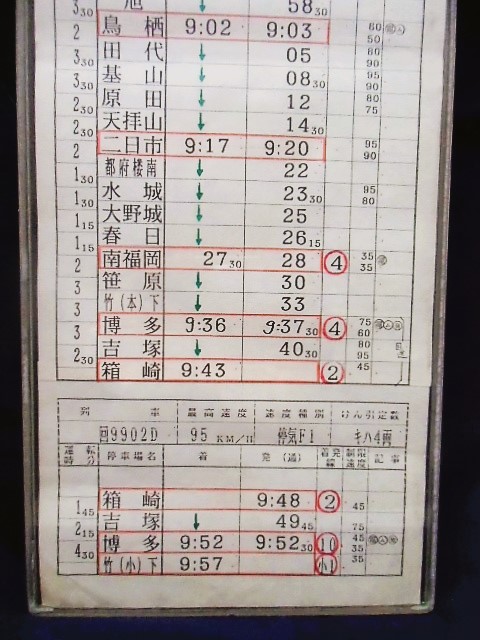 3 30 旭 58 30
2 鳥栖 9:02 9:03 60 50
3 30 田代 ↓ 05 80 90
3 30 基山 ↓ 08 30 95 90
2 30 原田 ↓ 12 80 75
2 30 天拝山 ↓ 14 30
2 二日市 9:17 9:20 95 90
1 30 都府楼南 ↓ 22
1 30 水城 ↓ 23 30 95 80
1 15 大野城 ↓ 25
1 15 春日 ↓ 26 15
2 南福岡 27 30 28 ④ 35 35
3 笹原 ↓ 30
3 竹(本)下 ↓ 33
3 博多 9:36 9:37 30 ④ 75 60
2 30 吉塚 ↓ 40 30 80 95
箱崎 9:43 ② 45
列車 最高速度 速度種別 けん引定数
回9902D 95 KM/H 停気F1 キハ4両
運転時分 停車場名 着 発(通) 着発線 制限速度 記事
1 45 箱崎 9:48 ② 45
2 15 吉塚 ↓ 49 45 75
4 30 博多 9:52 9:52 30 10 45 35
竹(小)下 9:57 小1 35